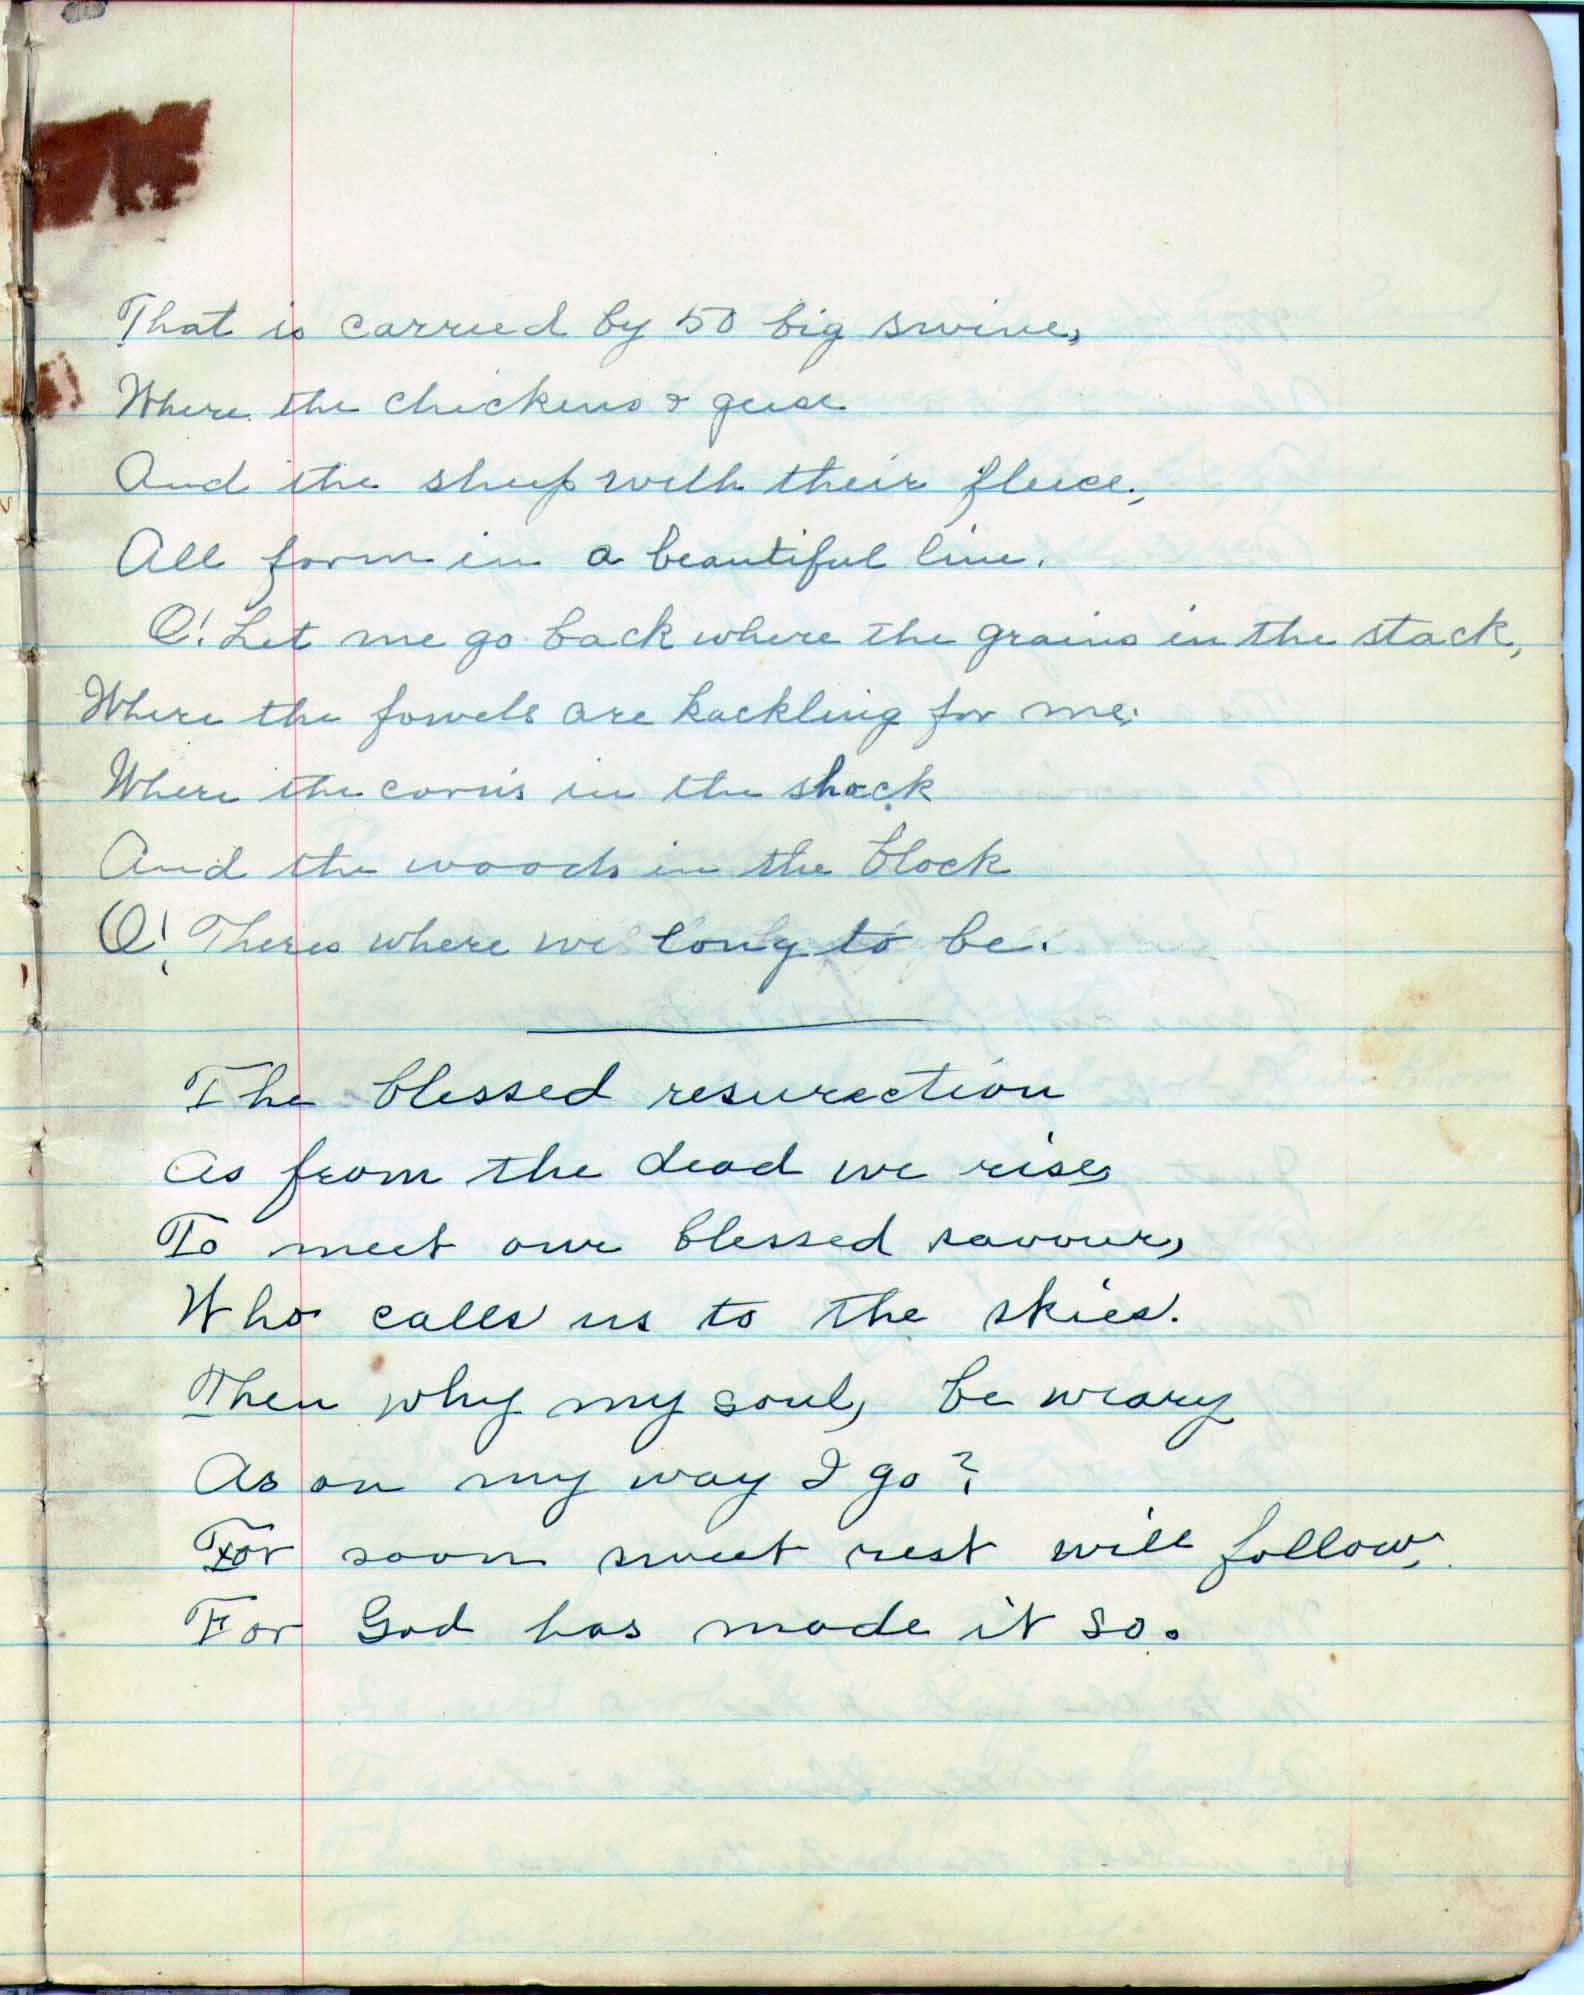 That is carried by 50 big swine,
Where the chickens & geese
And the sheep with their fleece,
All form in a beautiful line.
O! Let me go back where the grains in the stack,
Where the fowels are kackling for me;
Where the corn's in the shock
And the woods in the block
O! Theres where we long to be.
The blessed resurection
As from the dead we rise,
To meet our blessed savour,
Who calls us to the skies.
Then why my soul, be weary
As on my way I go?
For soon sweet rest will follow,
For God has made it so.